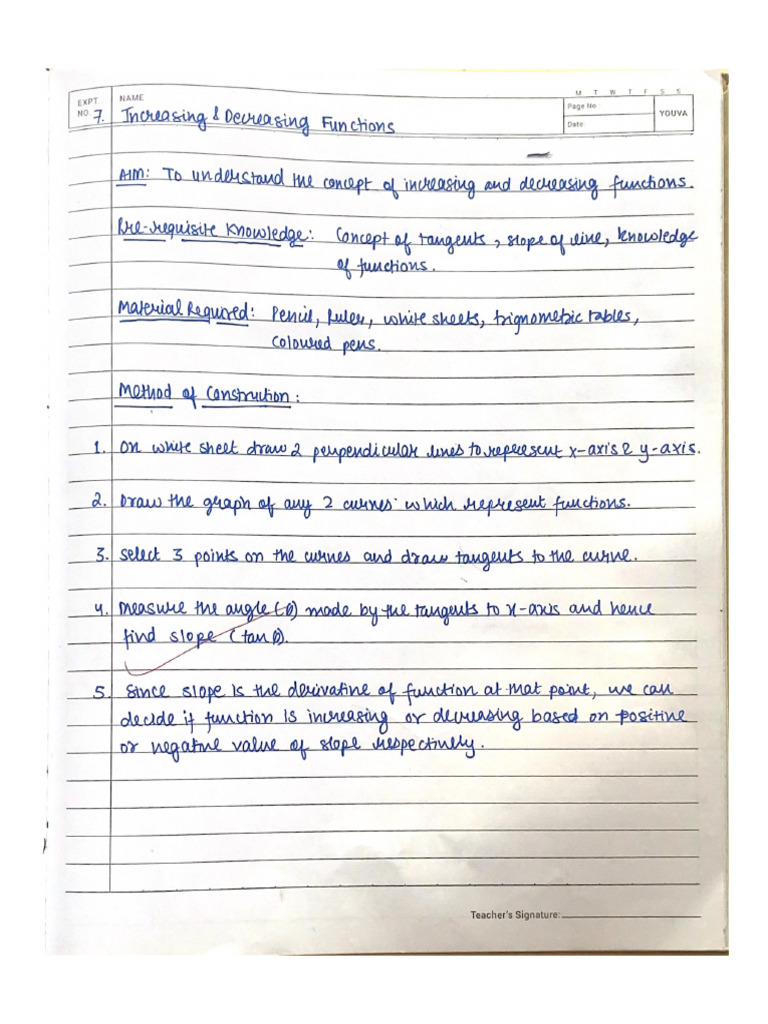 EXPT. NO. 7.
NAME
Increasing & Decreasing Functions
M T W T F S S
Page No
Date
YOUVA
AIM: To understand the concept of increasing and decreasing functions.
Pre-requisite Knowledge: Concept of tangents, slope of line, knowledge
of functions.
Material Required: Pencil, Ruler, white sheets, trignometric tables,
coloured pens.
Method of Construction:
1. On white sheet draw 2 perpendicular lines to represent x-axis & y-axis.
2. Draw the graph of any 2 curves which represent functions.
3. Select 3 points on the curves and draw tangents to the curve.
4. Measure the angle (θ) made by the tangents to x-axis and hence
find slope (tan θ).
5. Since slope is the derivative of function at that point, we can
decide if function is increasing or decreasing based on positive
or negative value of slope respectively.
Teacher's Signature: